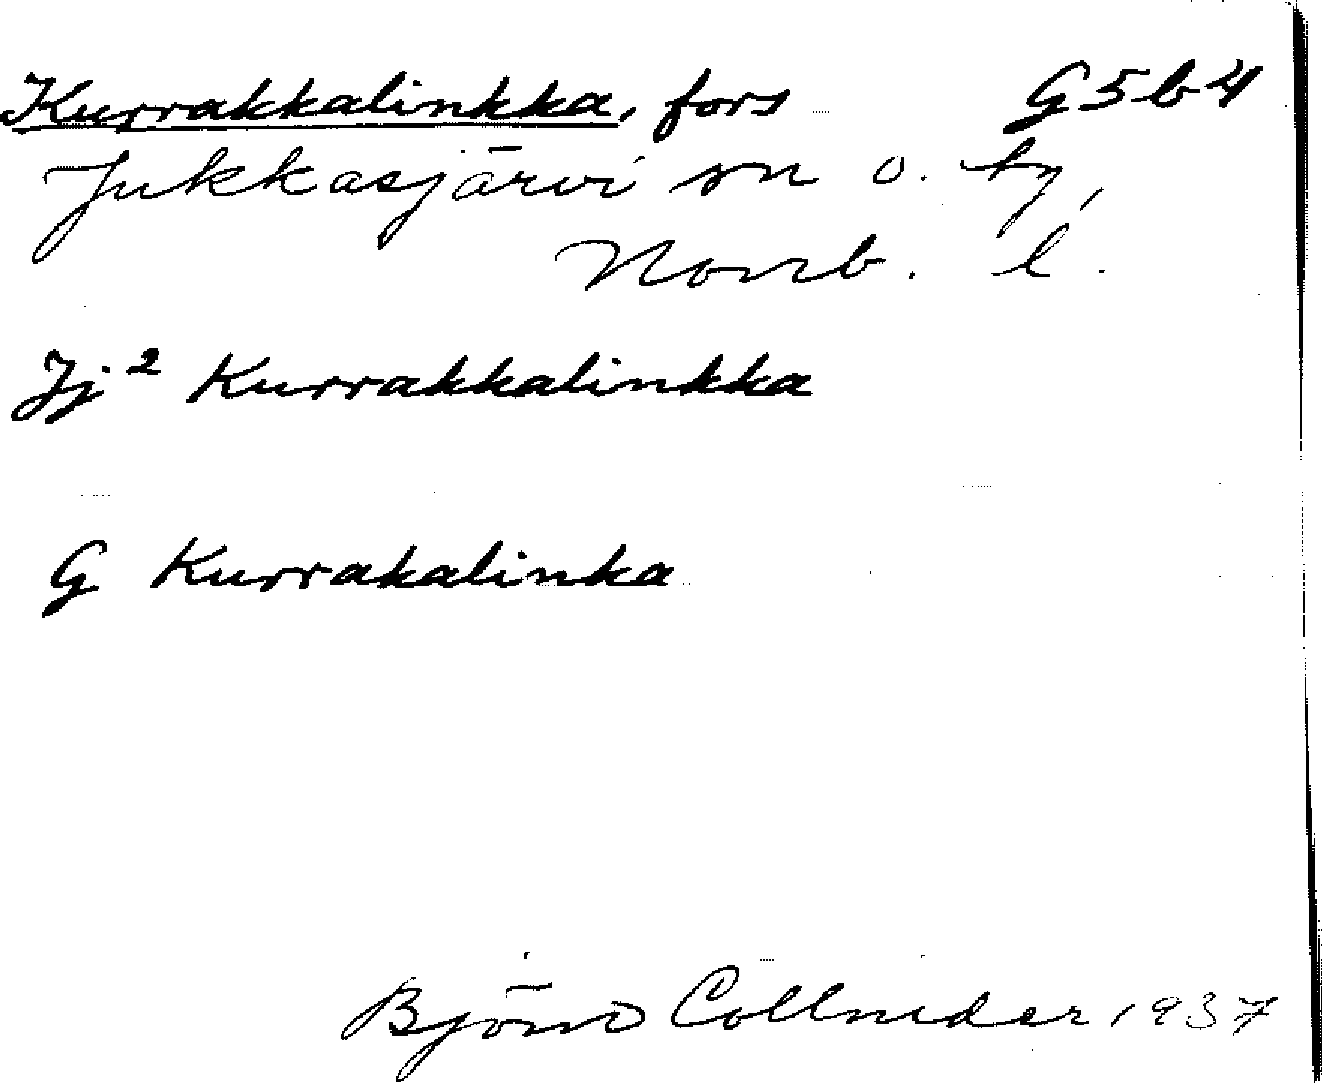 Kurrakkalinkka, fors G5b4
Jukkasjärvi sn o. ty,
Norrb. l.
Jj² Kurrakkalinkka
G Kurrakalinka
Björn Collinder 1937